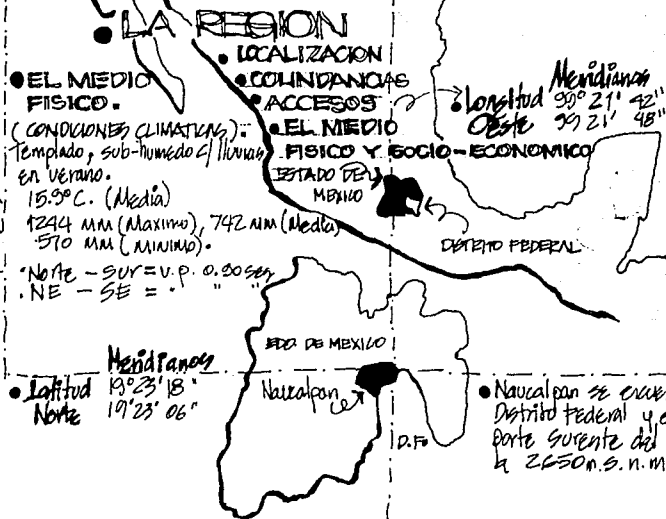 • LA REGION
• LOCALIZACION
• COLINDANCIAS
• ACCESOS
• EL MEDIO
FISICO Y SOCIO-ECONOMICO
• EL MEDIO
FISICO.
(CONDICIONES CLIMATICAS):
Templado, sub-humedo c/ lluvias
en verano.
15.9°C. (Media)
1244 MM (Maximo), 742 MM (Media)
570 MM (MINIMO).
• Norte - Sur = v.p. 0.90 seg
. NE - SE = . " "
Meridianos
• Longitud 99° 21' 42"
Oeste 99 21' 48"
ESTADO DE
MEXICO
DISTRITO FEDERAL
EDO. DE MEXICO
Naucalpan
D.F.
Meridianos
• Latitud 19°23'18"
Norte 19°23'06"
• Naucalpan se
Distrito Federal y
parte del
a 2650 m.s.n.m